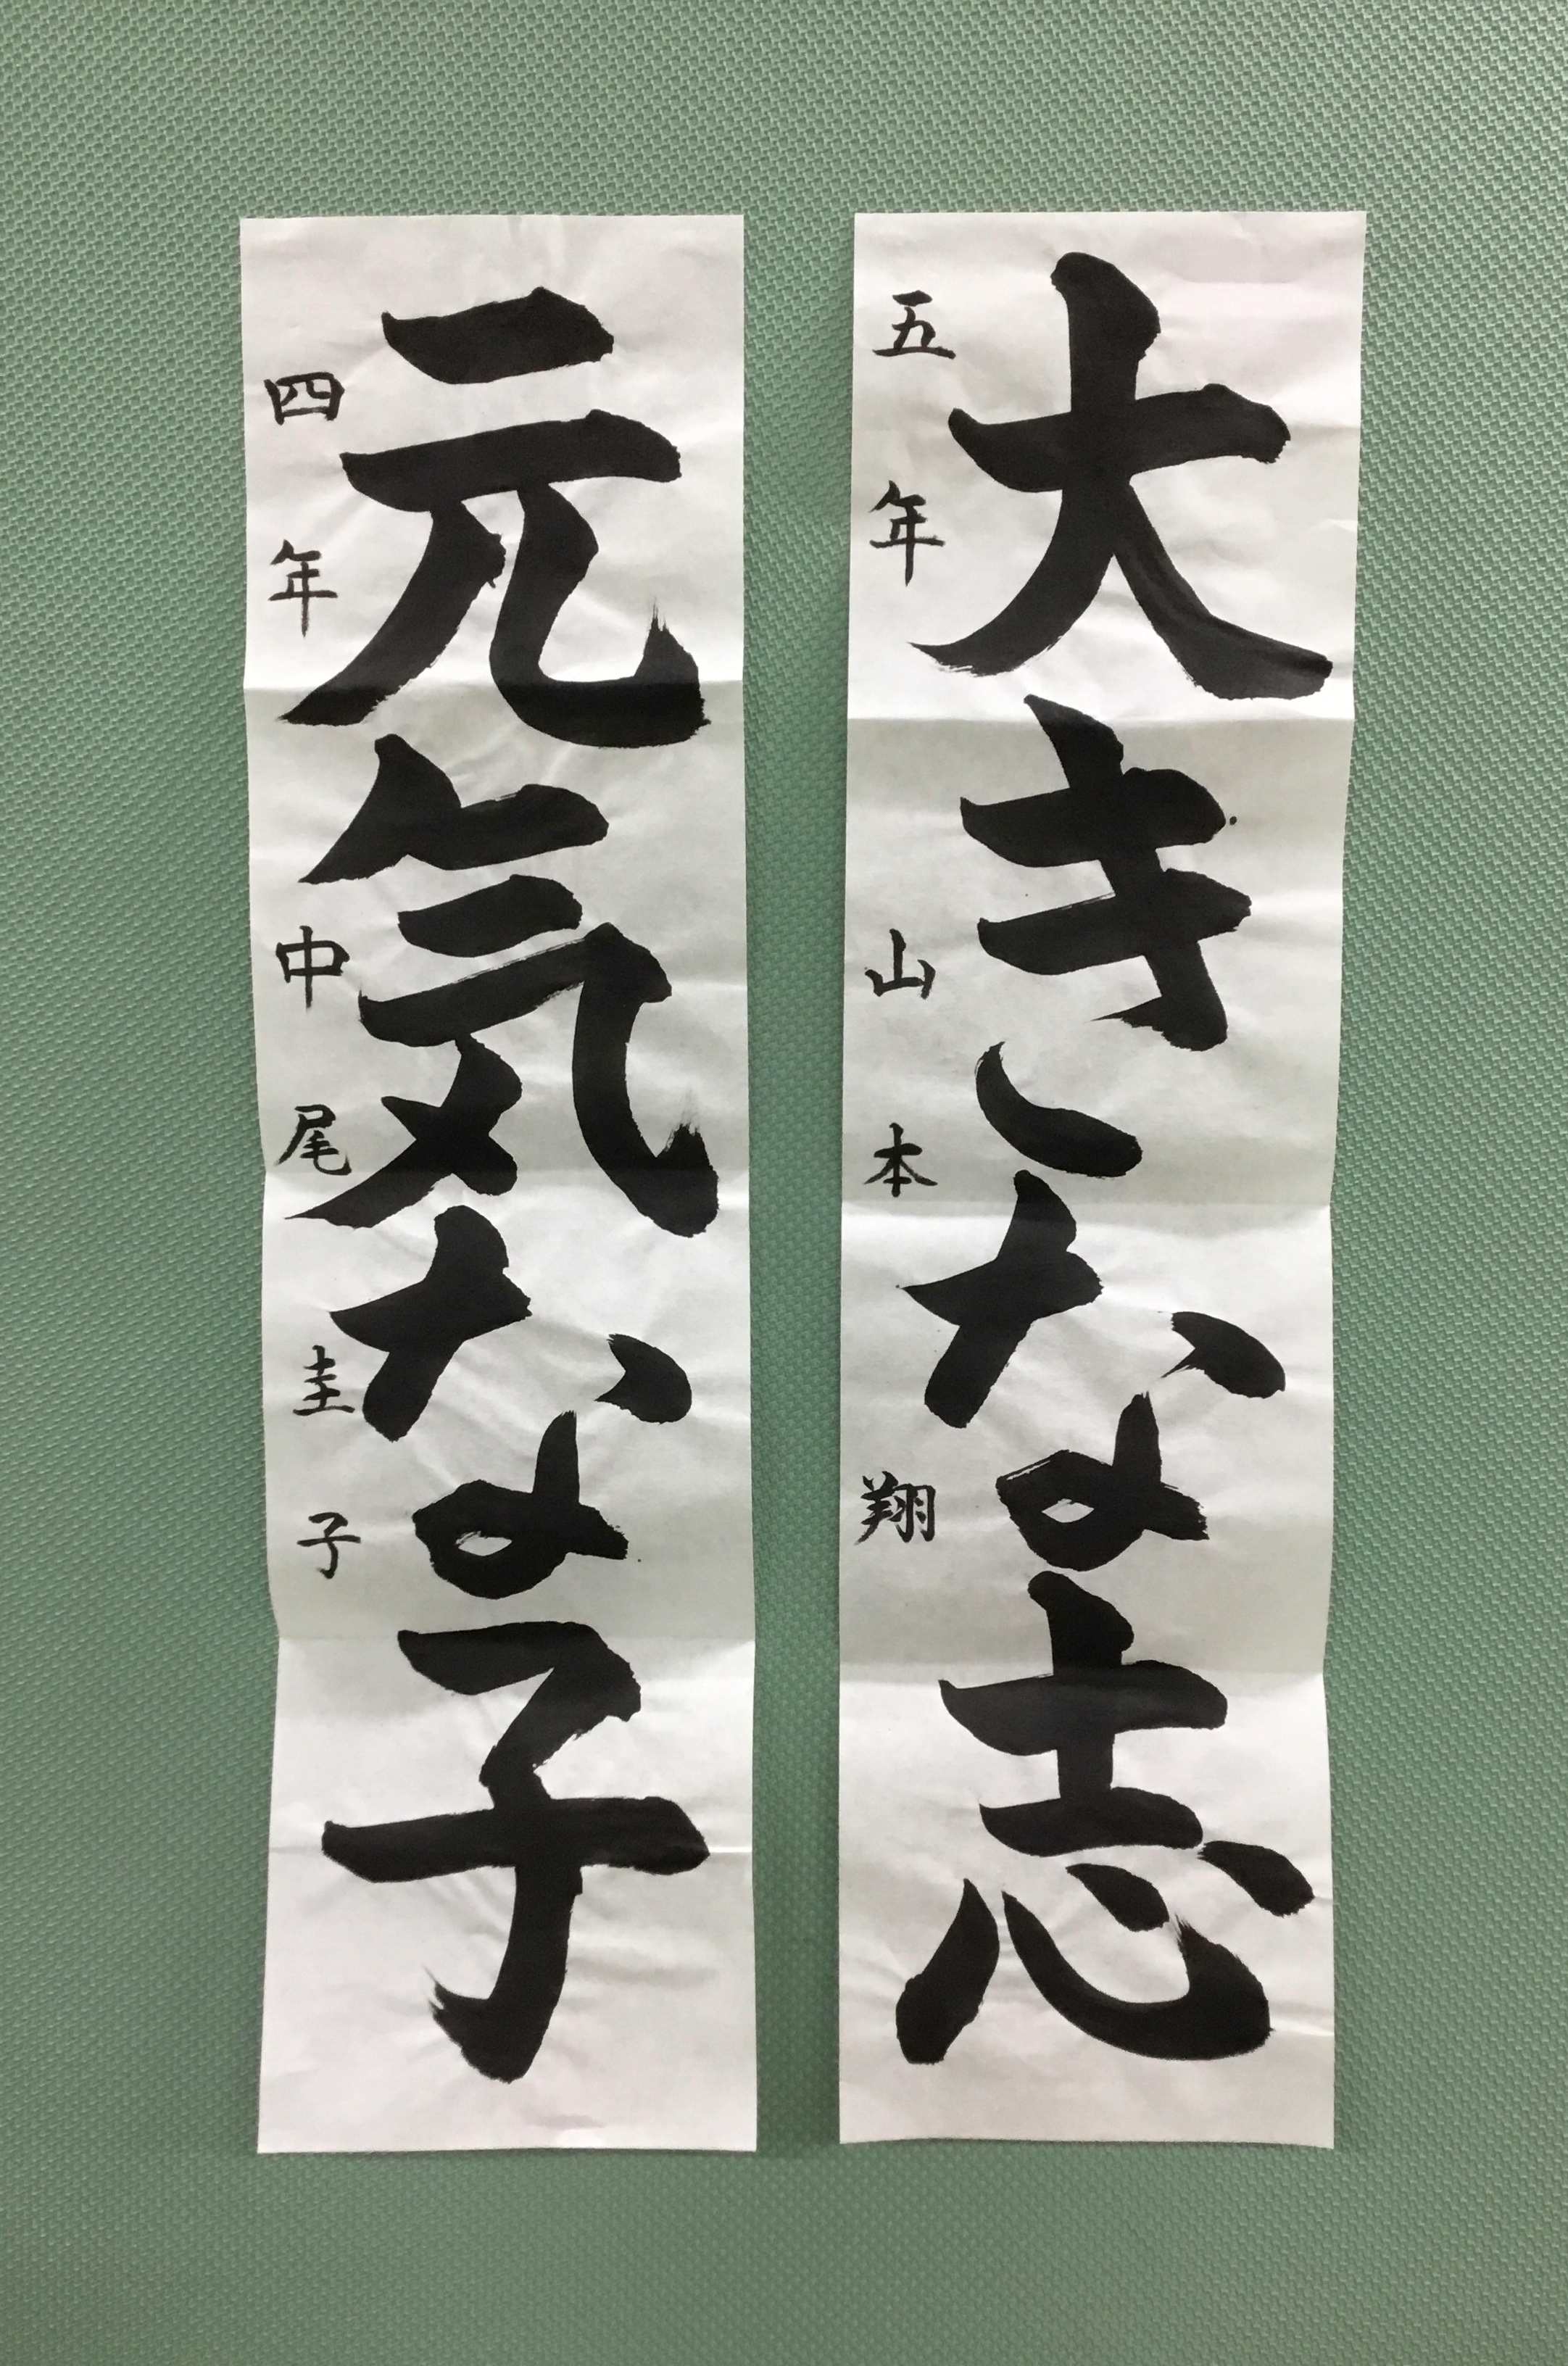 大きな志
五年 山本 翔
元気な子
四年 中尾 圭子